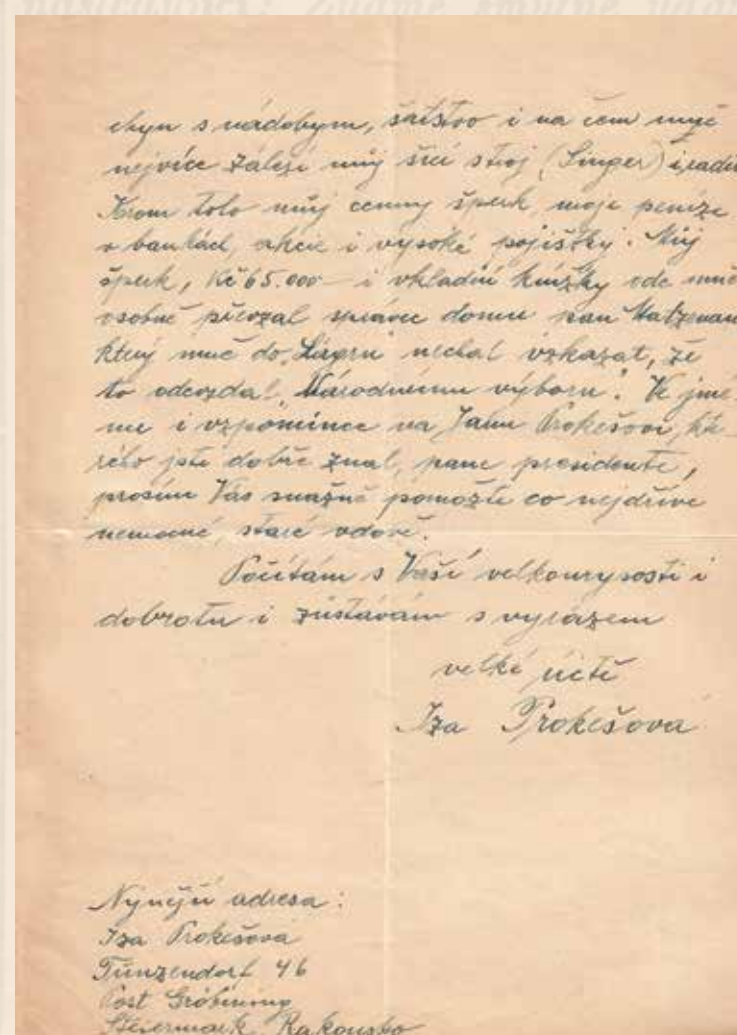 chyn s nádobym, šatstvo i na čem myč
nejvíce záleží můj šicí stroj (Singer) i radio
Krom toho můj cenný šperk, moje peníze
v bankách, akcie i vysoké pojištky. Můj
šperk, Kč 65.000 – i vkladní knížky ode mně
osobně převzal správce domu pan
který mně do „Lágru" nechal vzkázat, že
to odevzdal „Národnímu výboru". Ve jmé-
nu i vzpomínce na Jana Prokešovi, kte-
rého jste dobře znal, pane presidente,
prosím Vás snažně pomozte co nejdříve
nemocné, staré vdově.
Počítám s Vaší velkomyslostí i
dobrotu i zůstávám s výrazem
velké úctě
Iza Prokešová
Nynější adresa:
Iza Prokešová
Tunzendorf 46
Post Gröbming
Steiermark Rakousko